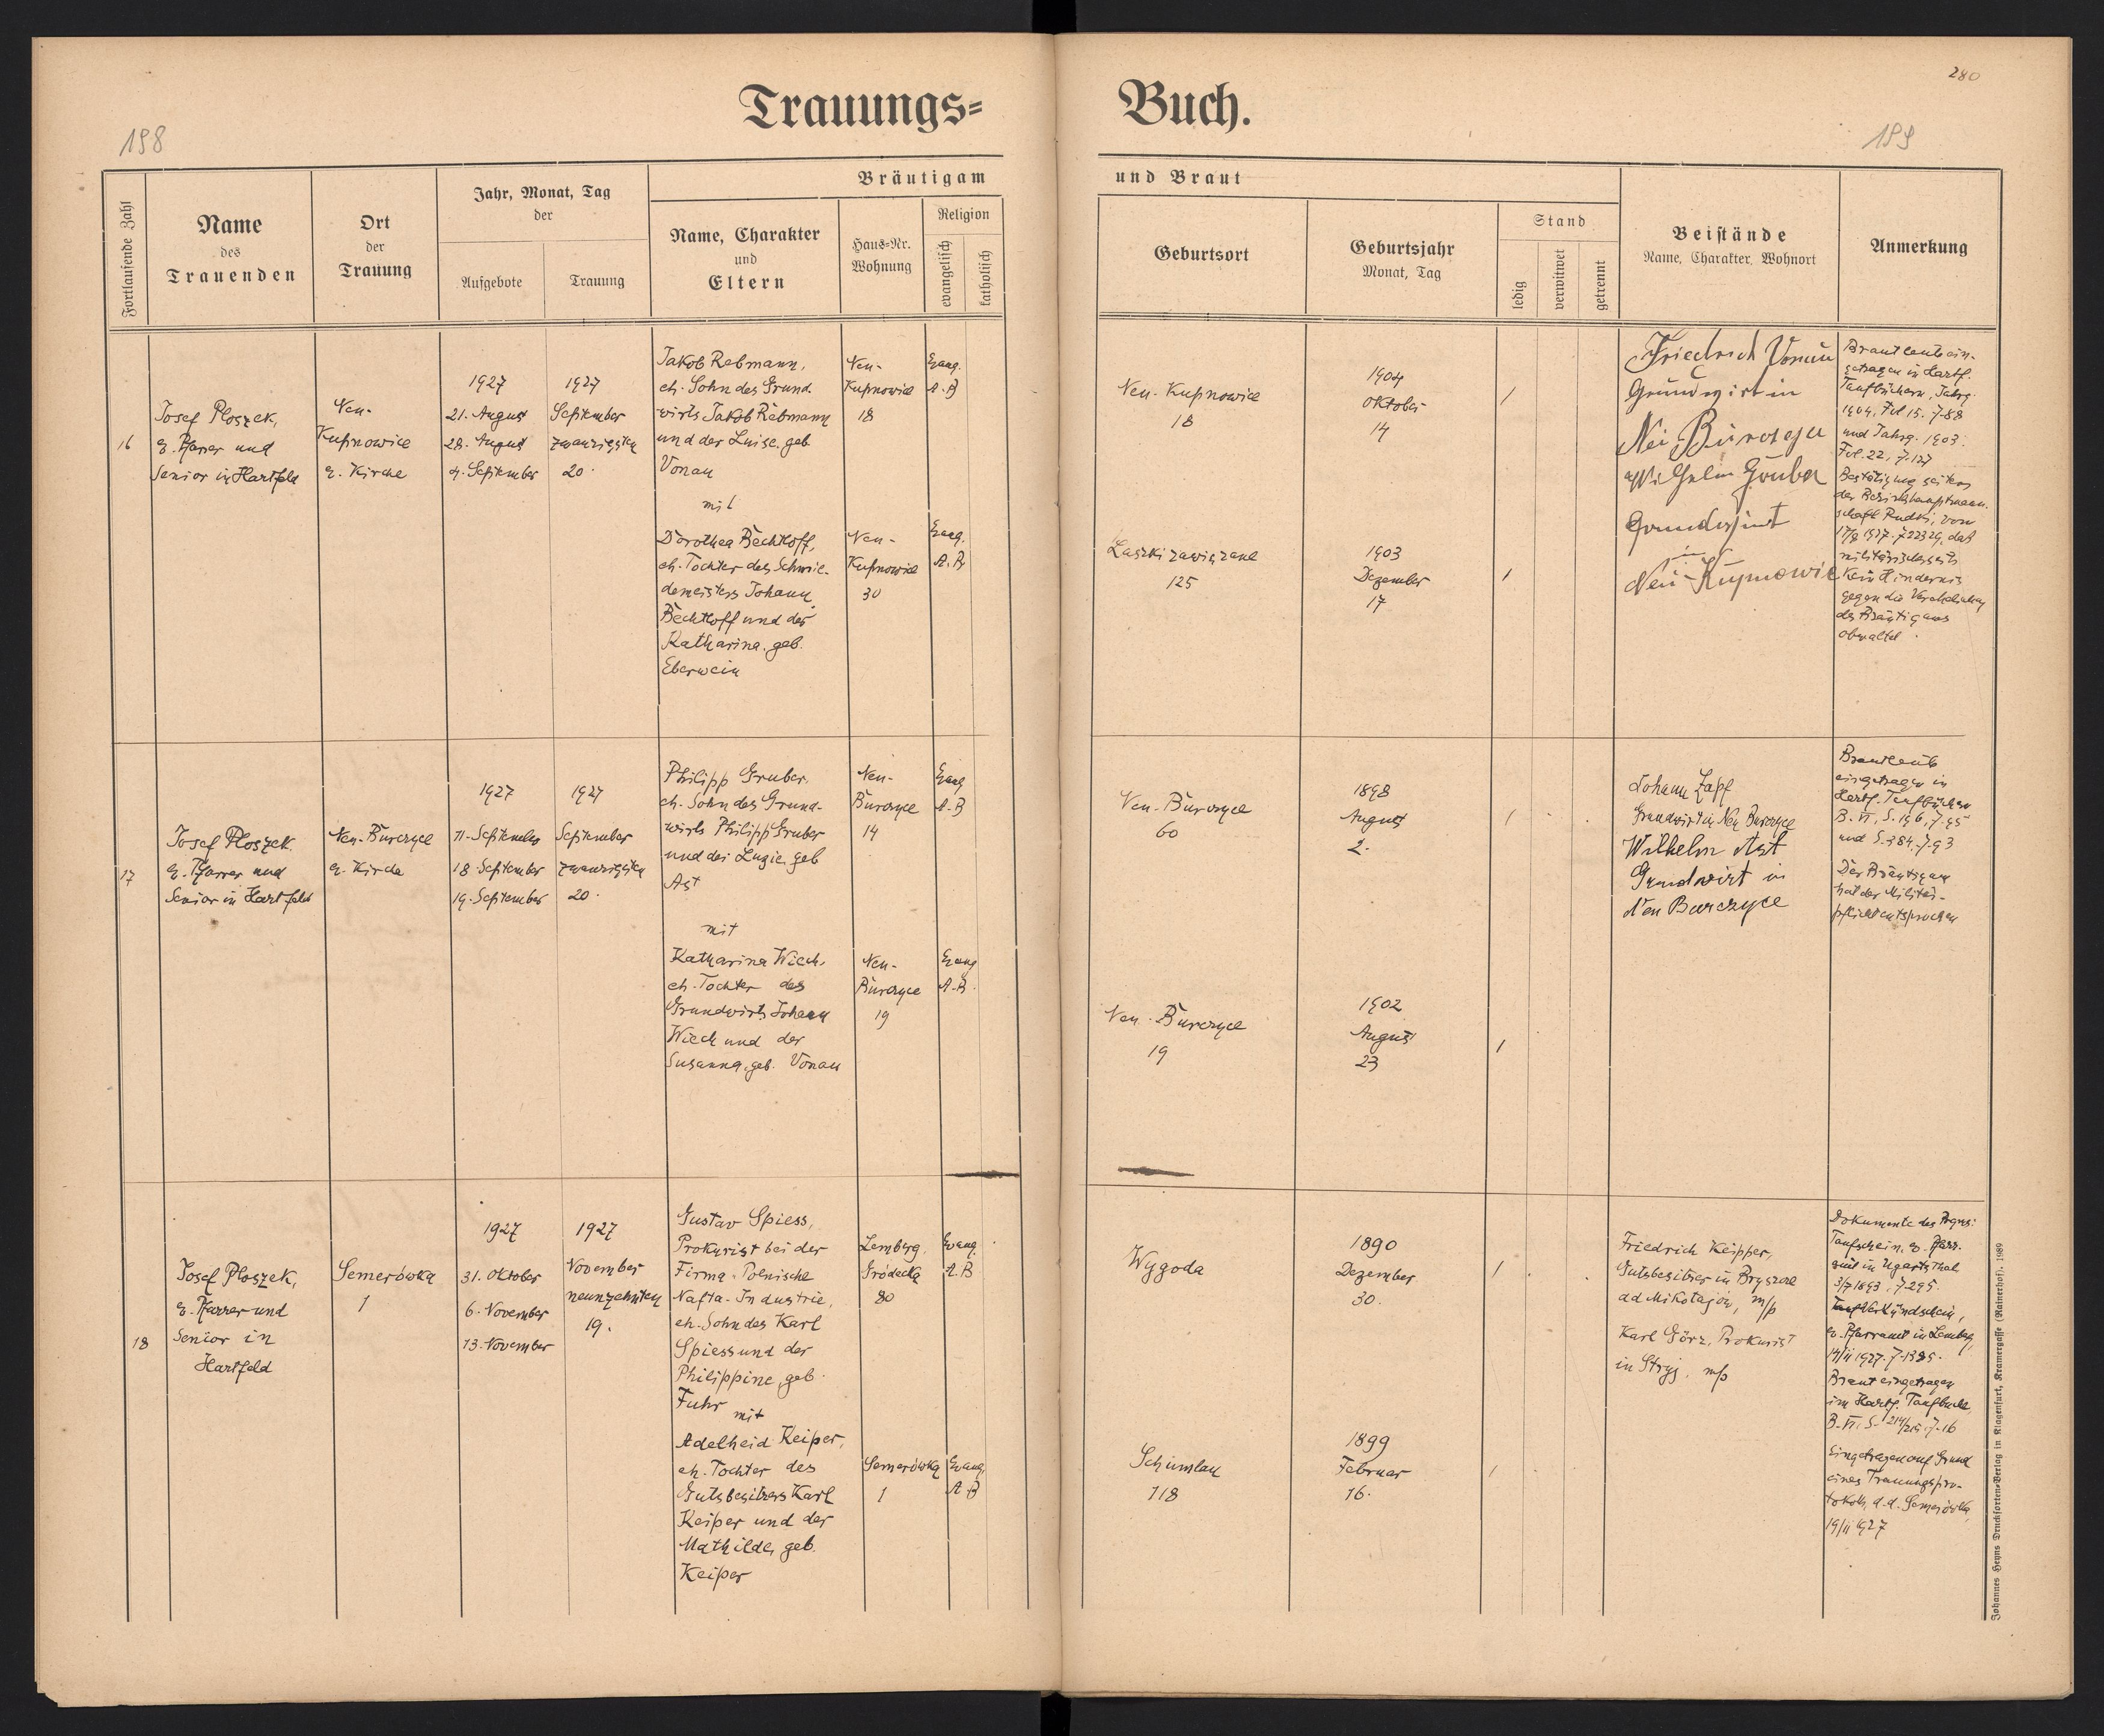 280
Trauungs=
Buch.
198
199
Fortlaufende Zahl
Name
des
Trauenden
Ort
der
Trauung
Jahr, Monat, Tag
der
Aufgebote
Trauung
Bräutigam
und Braut
Name, Charakter
und
Eltern
Haus=Nr.
Wohnung
Religion
evangelisch
katholisch
Geburtsort
Geburtsjahr
Monat, Tag
Stand
ledig
verwitwet
getrennt
Beistände
Name, Charakter, Wohnort
Anmerkung
16
Josef Ploszek,
e. Pfarrer und
Senior in Hartfeld
Neu-
Kupnowice
e. Kirche
1927
21. August
28. August
4. September
1927
September
zwanzigsten
20.
Jakob Rebmann,
eh. Sohn des Grund-
wirts Jakob Rebmann
und der Luise, geb.
Vonau
Neu-
Kupnowice
18
Evang.
A. B
mit
Dorothea Bechtloff,
eh. Tochter des Schmie-
demeisters Johann
Bechtloff und der
Katharina, geb.
Eberwein
Neu-
Kupnowice
30
Evang.
A. B
Neu-Kupnowice
18
1904
Oktober
14
/
Laszki zawiązane
125
1903
Dezember
17
/
Friedrich Vonau
Grundwirt in
Nei Burczyce
Wilhelm Gruber
Grundwirt
Neu-Kupnowice
Brautleute ein-
getragen in Hartf.
Taufbüchern, Jahrg.
1904, Fol 15. Z-88
und Jahrg. 1903.
Fol. 22, Z. 127
Bestätigung seitens
der Bezirkshauptmann-
schaft Rudki, vom
daß
militärischerseits
kein Hindernis
gegen die Verehelichung
des Bräutigams
obwaltet.
17
Josef Ploszek
e. Pfarrer und
Senior in Hartfeld
Neu-Burczyce
e. Kirche
1927
11. September
18. September
19. September
1927
September
zwanzigsten
20.
Philipp Gruber,
eh. Sohn des Grund-
wirts Philipp Gruber
und der Luzie, geb
Ast
Neu-
Burczyce
14
Evang
A. B
mit
Katharina Wiech,
eh. Tochter des
Grundwirts Johann
Wiech und der
Susanna, geb. Vonau
Neu-
Burczyce
19
Evang
A. B.
Neu-Burczyce
60
1898
August
2.
/
Neu-Burczyce
19
1902
August
23
/
Johann Zapf
Grundwirt in Neu Burczyce
Wilhelm Ast
Grundwirt in
Neu Burczyce
Brautleute
eingetragen in
Hartf. Taufbücher
B. VI, S. 196, Z. 95
und S. 384. Z. 93
Der Bräutigam
hat der Militär-
pflicht entsprochen
18
Josef Ploszek,
e. Pfarrer und
Senior in
Hartfeld
Semerówka
1
1927
31. Oktober
6. November
13. November
1927
November
neunzehnten
19.
Gustav Spiess,
Prokurist bei der
Firma "Polnische
Nafta-Industrie,
eh. Sohn des Karl
Spiess und der
Philippine, geb.
Fuhr
Lemberg,
Gródecka
80
Evang.
A. B
mit
Adelheid Keiper,
eh. Tochter des
Gutsbesitzers Karl
Keiper und der
Mathilde, geb.
Keiper
Semerówka
1
Evang.
A B
Wygoda
1890
Dezember
30.
/
Schumlau
118
1899
Februar
16.
/
Friedrich Keipper,
Gutsbesitzer in Bryszcze
ad Mikołajow, m/p
Karl Görz, Prokurist
in Stryj, m/p
Dokumente des Bräus:
Taufschein, e. Pfarr-
amt in Ugartsthal
3/7 1893, Z. 295.
Verkündschein,
e. Pfarramt in Lemberg,
14/11 1927. Z-1385.
Braut eingetragen
im Hartf. Taufbuch,
B. VI, S. 214/215. Z-16
Eingetragen auf Grund
eines Trauungspro-
tokolls d. d. Semerówka,
19/11 1927
Johannes Heyns Drucksorten=Verlag in Klagenfurt, Kramergasse (Rainerhof), 1989